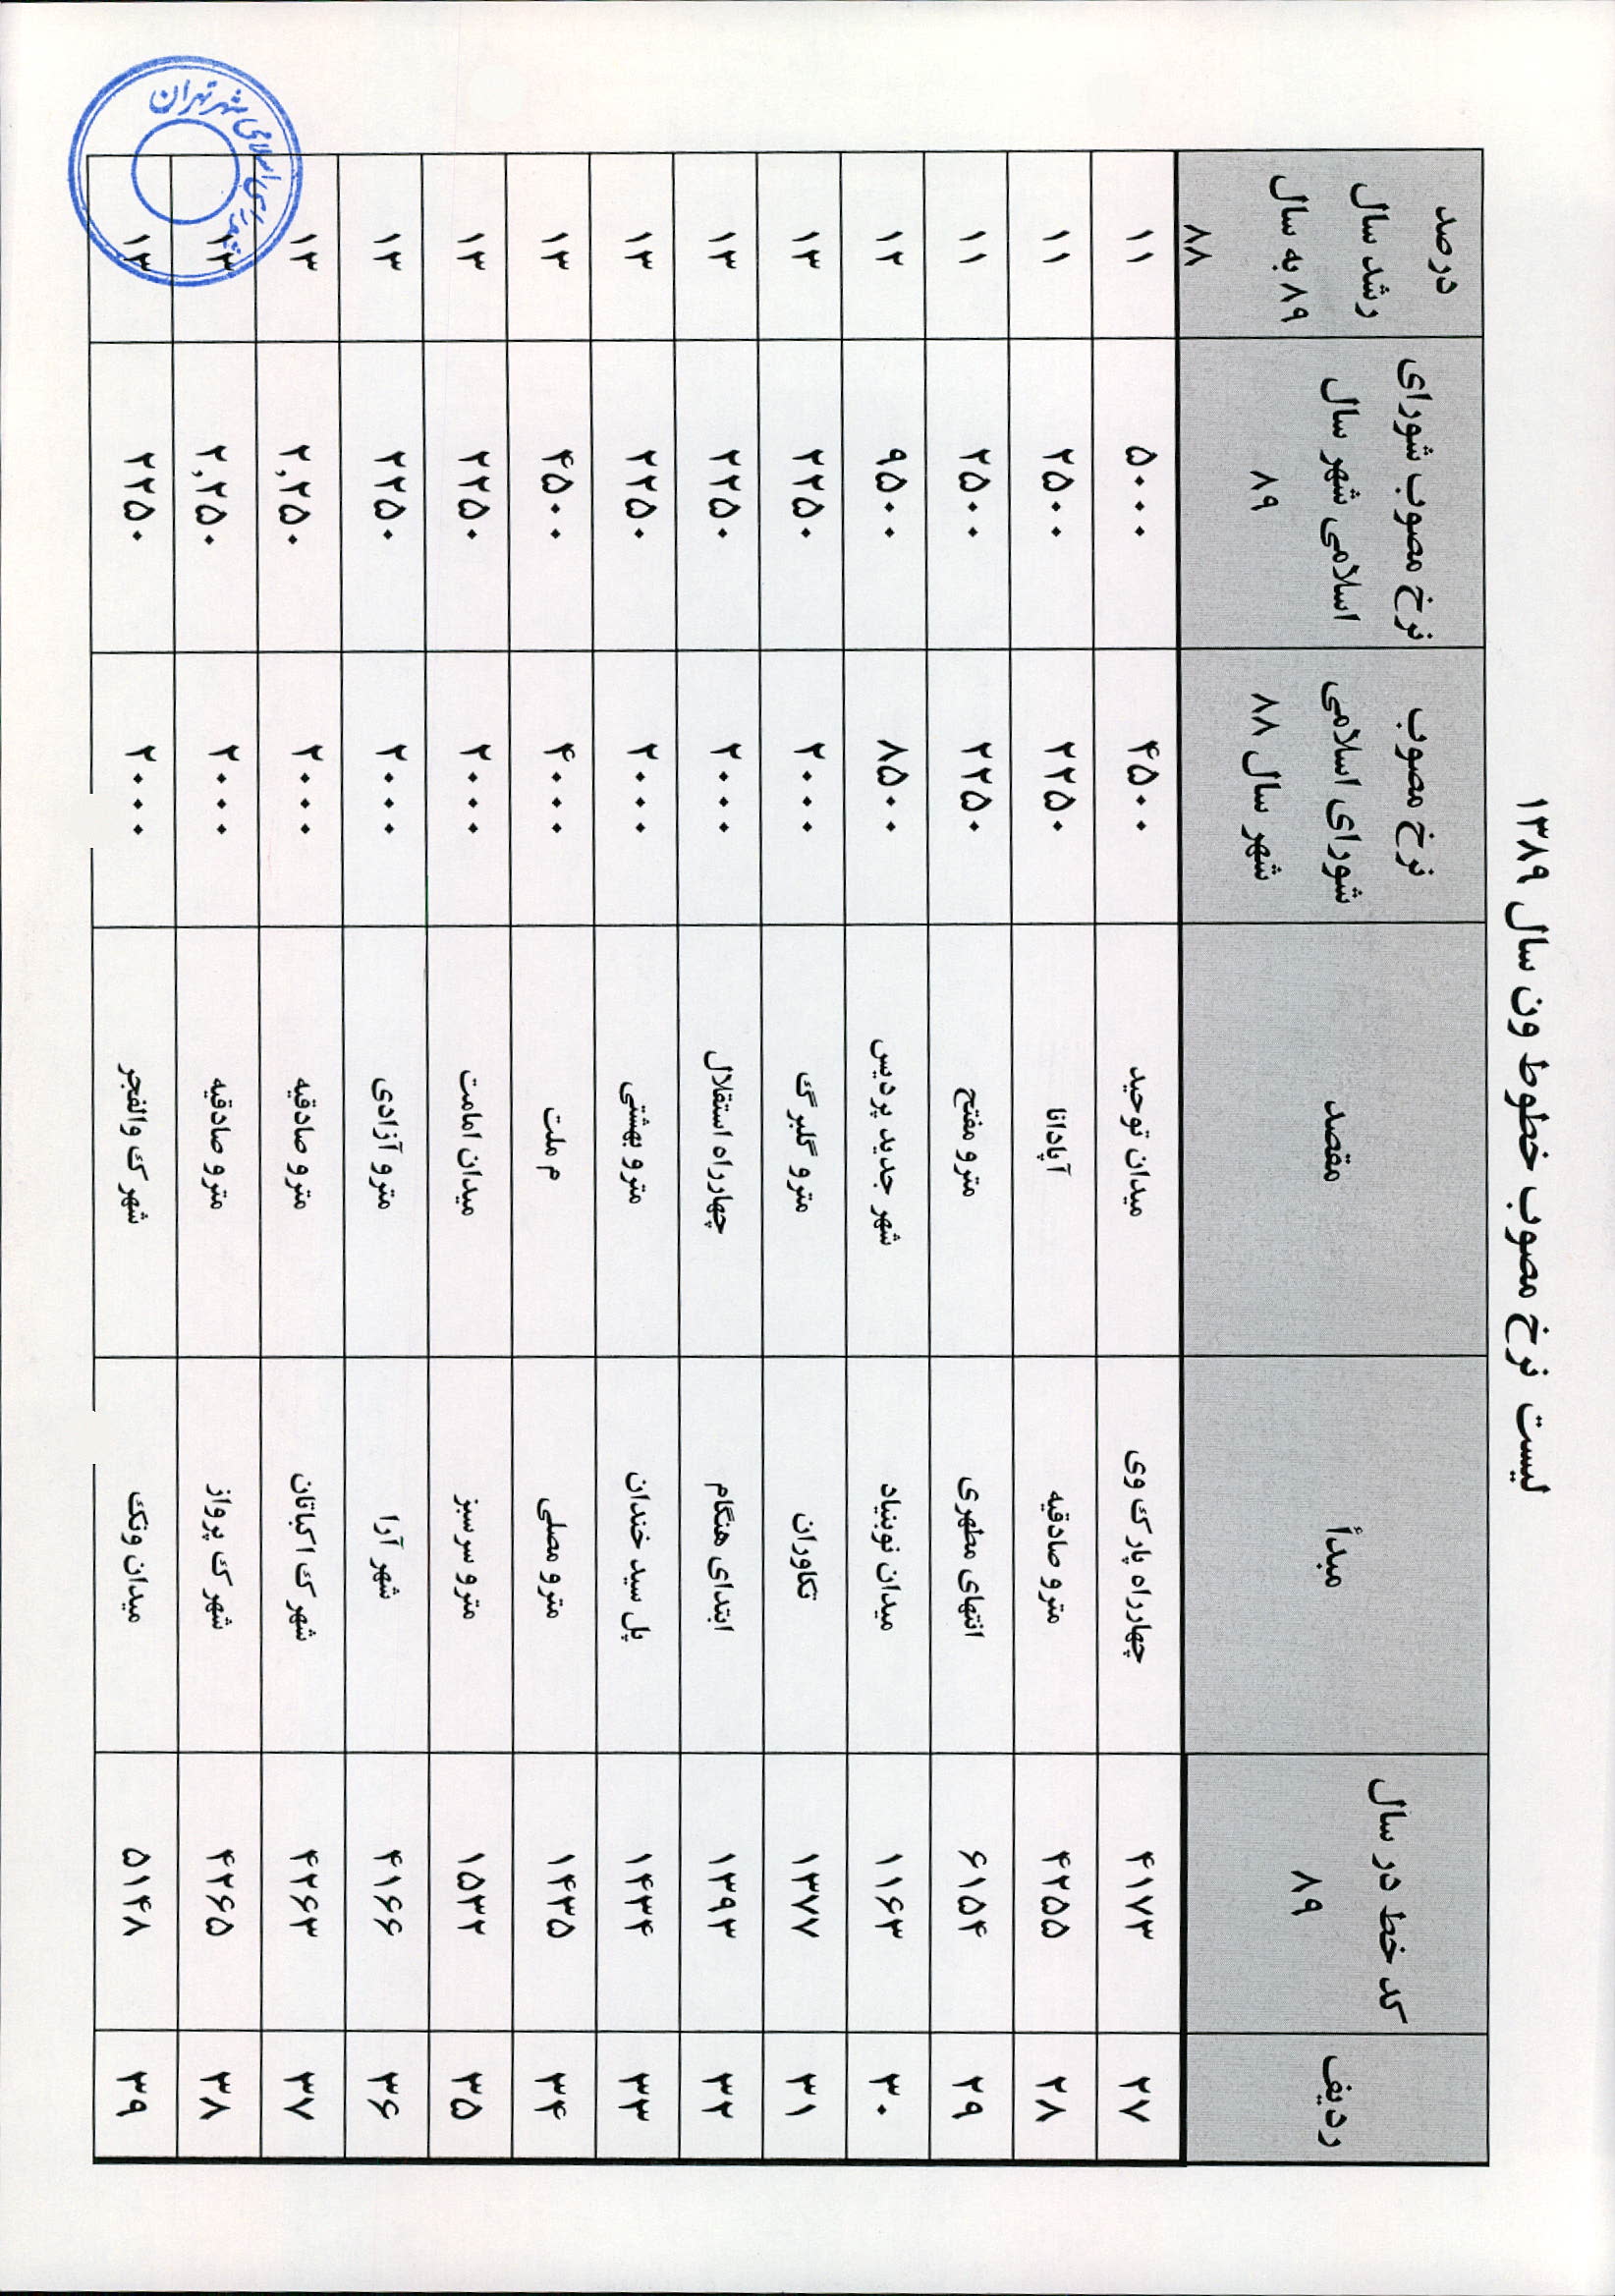 لیست نرخ مصوب خطوط ون سال ۱۳۸۹
ردیف | کد خط در سال ۸۹ | مبدأ | مقصد | نرخ مصوب شورای اسلامی شهر سال ۸۸ | نرخ مصوب شورای اسلامی شهر سال ۸۹ | درصد رشد سال ۸۹ به سال ۸۸
۲۷ | ۴۱۷۳ | چهارراه پارک وی | میدان توحید | ۴۵۰۰ | ۵۰۰۰ | ۱۱
۲۸ | ۴۲۵۵ | مترو صادقیه | آپادانا | ۲۲۵۰ | ۲۵۰۰ | ۱۱
۲۹ | ۶۱۵۴ | انتهای مطهری | مترو مفتح | ۲۲۵۰ | ۲۵۰۰ | ۱۱
۳۰ | ۱۱۶۳ | میدان نوبنیاد | شهر جدید پردیس | ۸۵۰۰ | ۹۵۰۰ | ۱۲
۳۱ | ۱۳۷۷ | تکاوران | مترو گلبرگ | ۲۰۰۰ | ۲۲۵۰ | ۱۳
۳۲ | ۱۳۹۳ | ابتدای هنگام | چهارراه استقلال | ۲۰۰۰ | ۲۲۵۰ | ۱۳
۳۳ | ۱۴۳۴ | پل سید خندان | مترو بهشتی | ۲۰۰۰ | ۲۲۵۰ | ۱۳
۳۴ | ۱۴۳۵ | مترو مصلی | م ملت | ۴۰۰۰ | ۴۵۰۰ | ۱۳
۳۵ | ۱۵۳۲ | مترو سرسبز | میدان امامت | ۲۰۰۰ | ۲۲۵۰ | ۱۳
۳۶ | ۴۱۶۶ | شهر آرا | مترو آزادی | ۲۰۰۰ | ۲۲۵۰ | ۱۳
۳۷ | ۴۲۶۳ | شهرک اکباتان | مترو صادقیه | ۲۰۰۰ | ۲,۲۵۰ | ۱۳
۳۸ | ۴۲۶۵ | شهرک پرواز | مترو صادقیه | ۲۰۰۰ | ۲,۲۵۰ | ۱۳
۳۹ | ۵۱۴۸ | میدان ونک | شهرک والفجر | ۲۰۰۰ | ۲۲۵۰ | ۱۳
شورای اسلامی شهر تهران